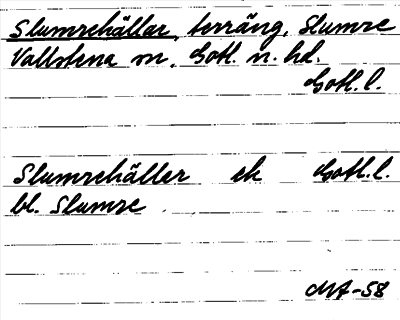 Slumrehällar, terräng, Slumre
Vallstena sn, Gotl. n. hd.
Gotl. l.
Slumrehäller ek Gotl. l.
bl. Slumre
MA-58